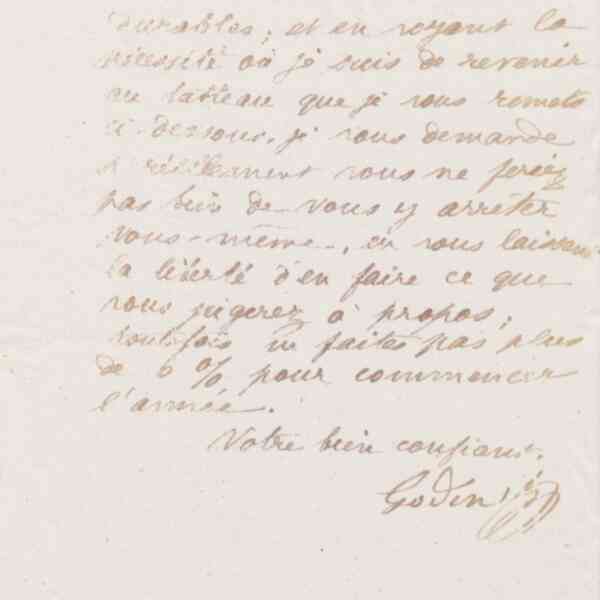 durables ; et en voyant la
nécessité où je suis de revenir
au tableau que je vous remets
ci-dessous, je vous demande
si réellement vous ne feriez
pas bien de vous y arrêter
vous-même, en vous laissant
la liberté d'en faire ce que
vous jugerez à propos ;
toutefois n'en faites pas plus
de 6 % pour commencer
l'année.
Votre bien confiant.
Godin